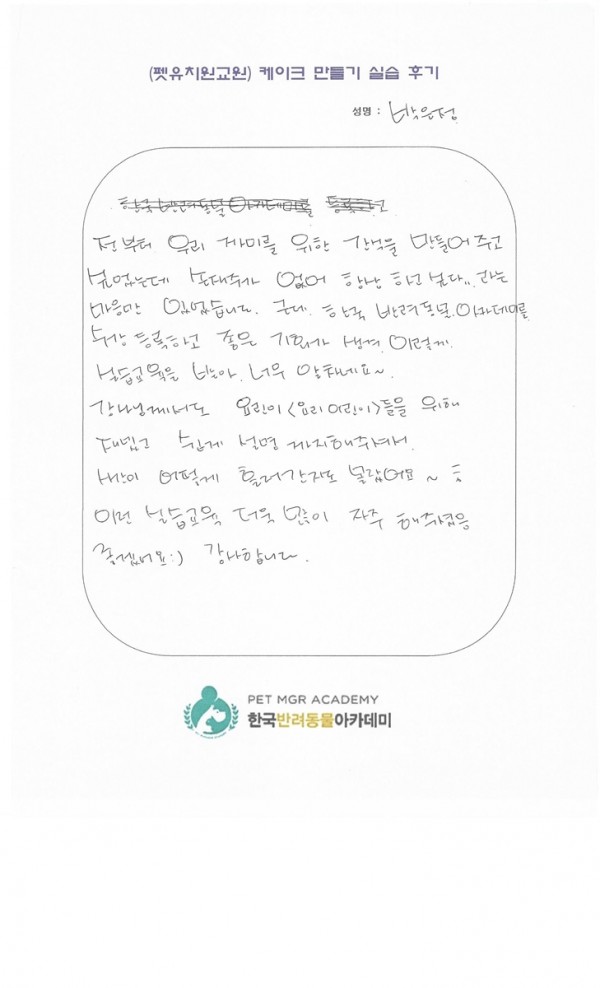 (펫유치원교원) 케이크 만들기 실습 후기
성명 : 박은정
한국 반려동물 아카데미를 등록하고
전부터 우리 가미를 위한 간식을 만들어 주고
싶었는데 손재주가 없어 항상 하고 싶다.. 라는
마음만 있었습니다. 근데, 한국 반려동물 아카데미를
수강 등록하고 좋은 기회가 생겨 이렇게
실습교육을 받아 너무 알차네요~
강사님께서도 요린이<요리 어린이>들을 위해
재밌고 쉽게 설명 까지해주셔서
시간이 어떻게 흘러간지도 몰랐어요~
이런 실습교육 더욱 많이 자주 해주셨음
좋겠어요:) 감사합니다.
PET MGR ACADEMY
한국반려동물아카데미